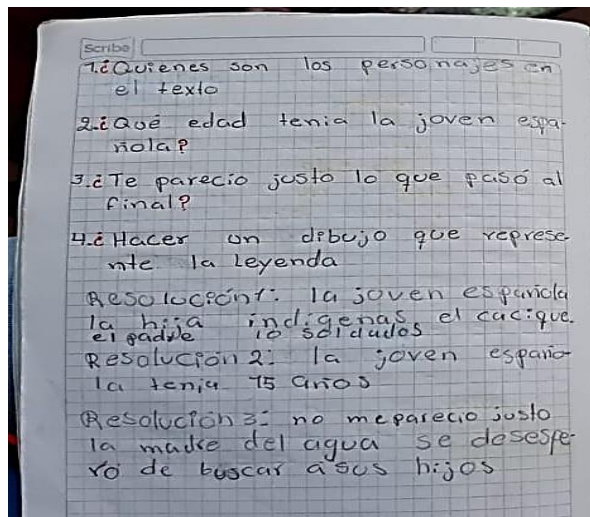 Scribe
1.¿Quienes son los personajes en
el texto
2.¿Qué edad tenia la joven espa-
ñola?
3.¿Te parecio justo lo que pasó al
final?
4.¿Hacer un dibujo que represe-
nte la Leyenda
Resolución1: la joven española
la hija indigenas el cacique.
el padre lo soldados
Resolución 2: la joven españo-
la tenia 15 años
Resolución 3: no meparecio justo
la madre del agua se desespe-
ro de buscar a sus hijos